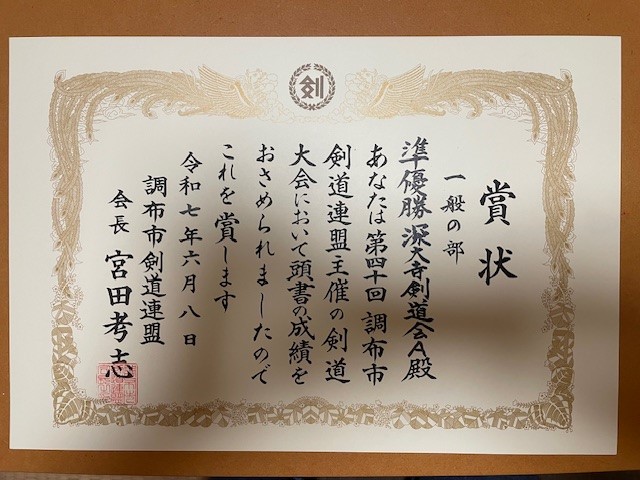 剣
賞状
一般の部
準優勝 深大寺剣道会A殿
あなたは第四十回 調布市
剣道連盟主催の剣道
大会において頭書の成績を
おさめられましたので
これを賞します
令和七年六月八日
調布市剣道連盟
会長 宮田考志